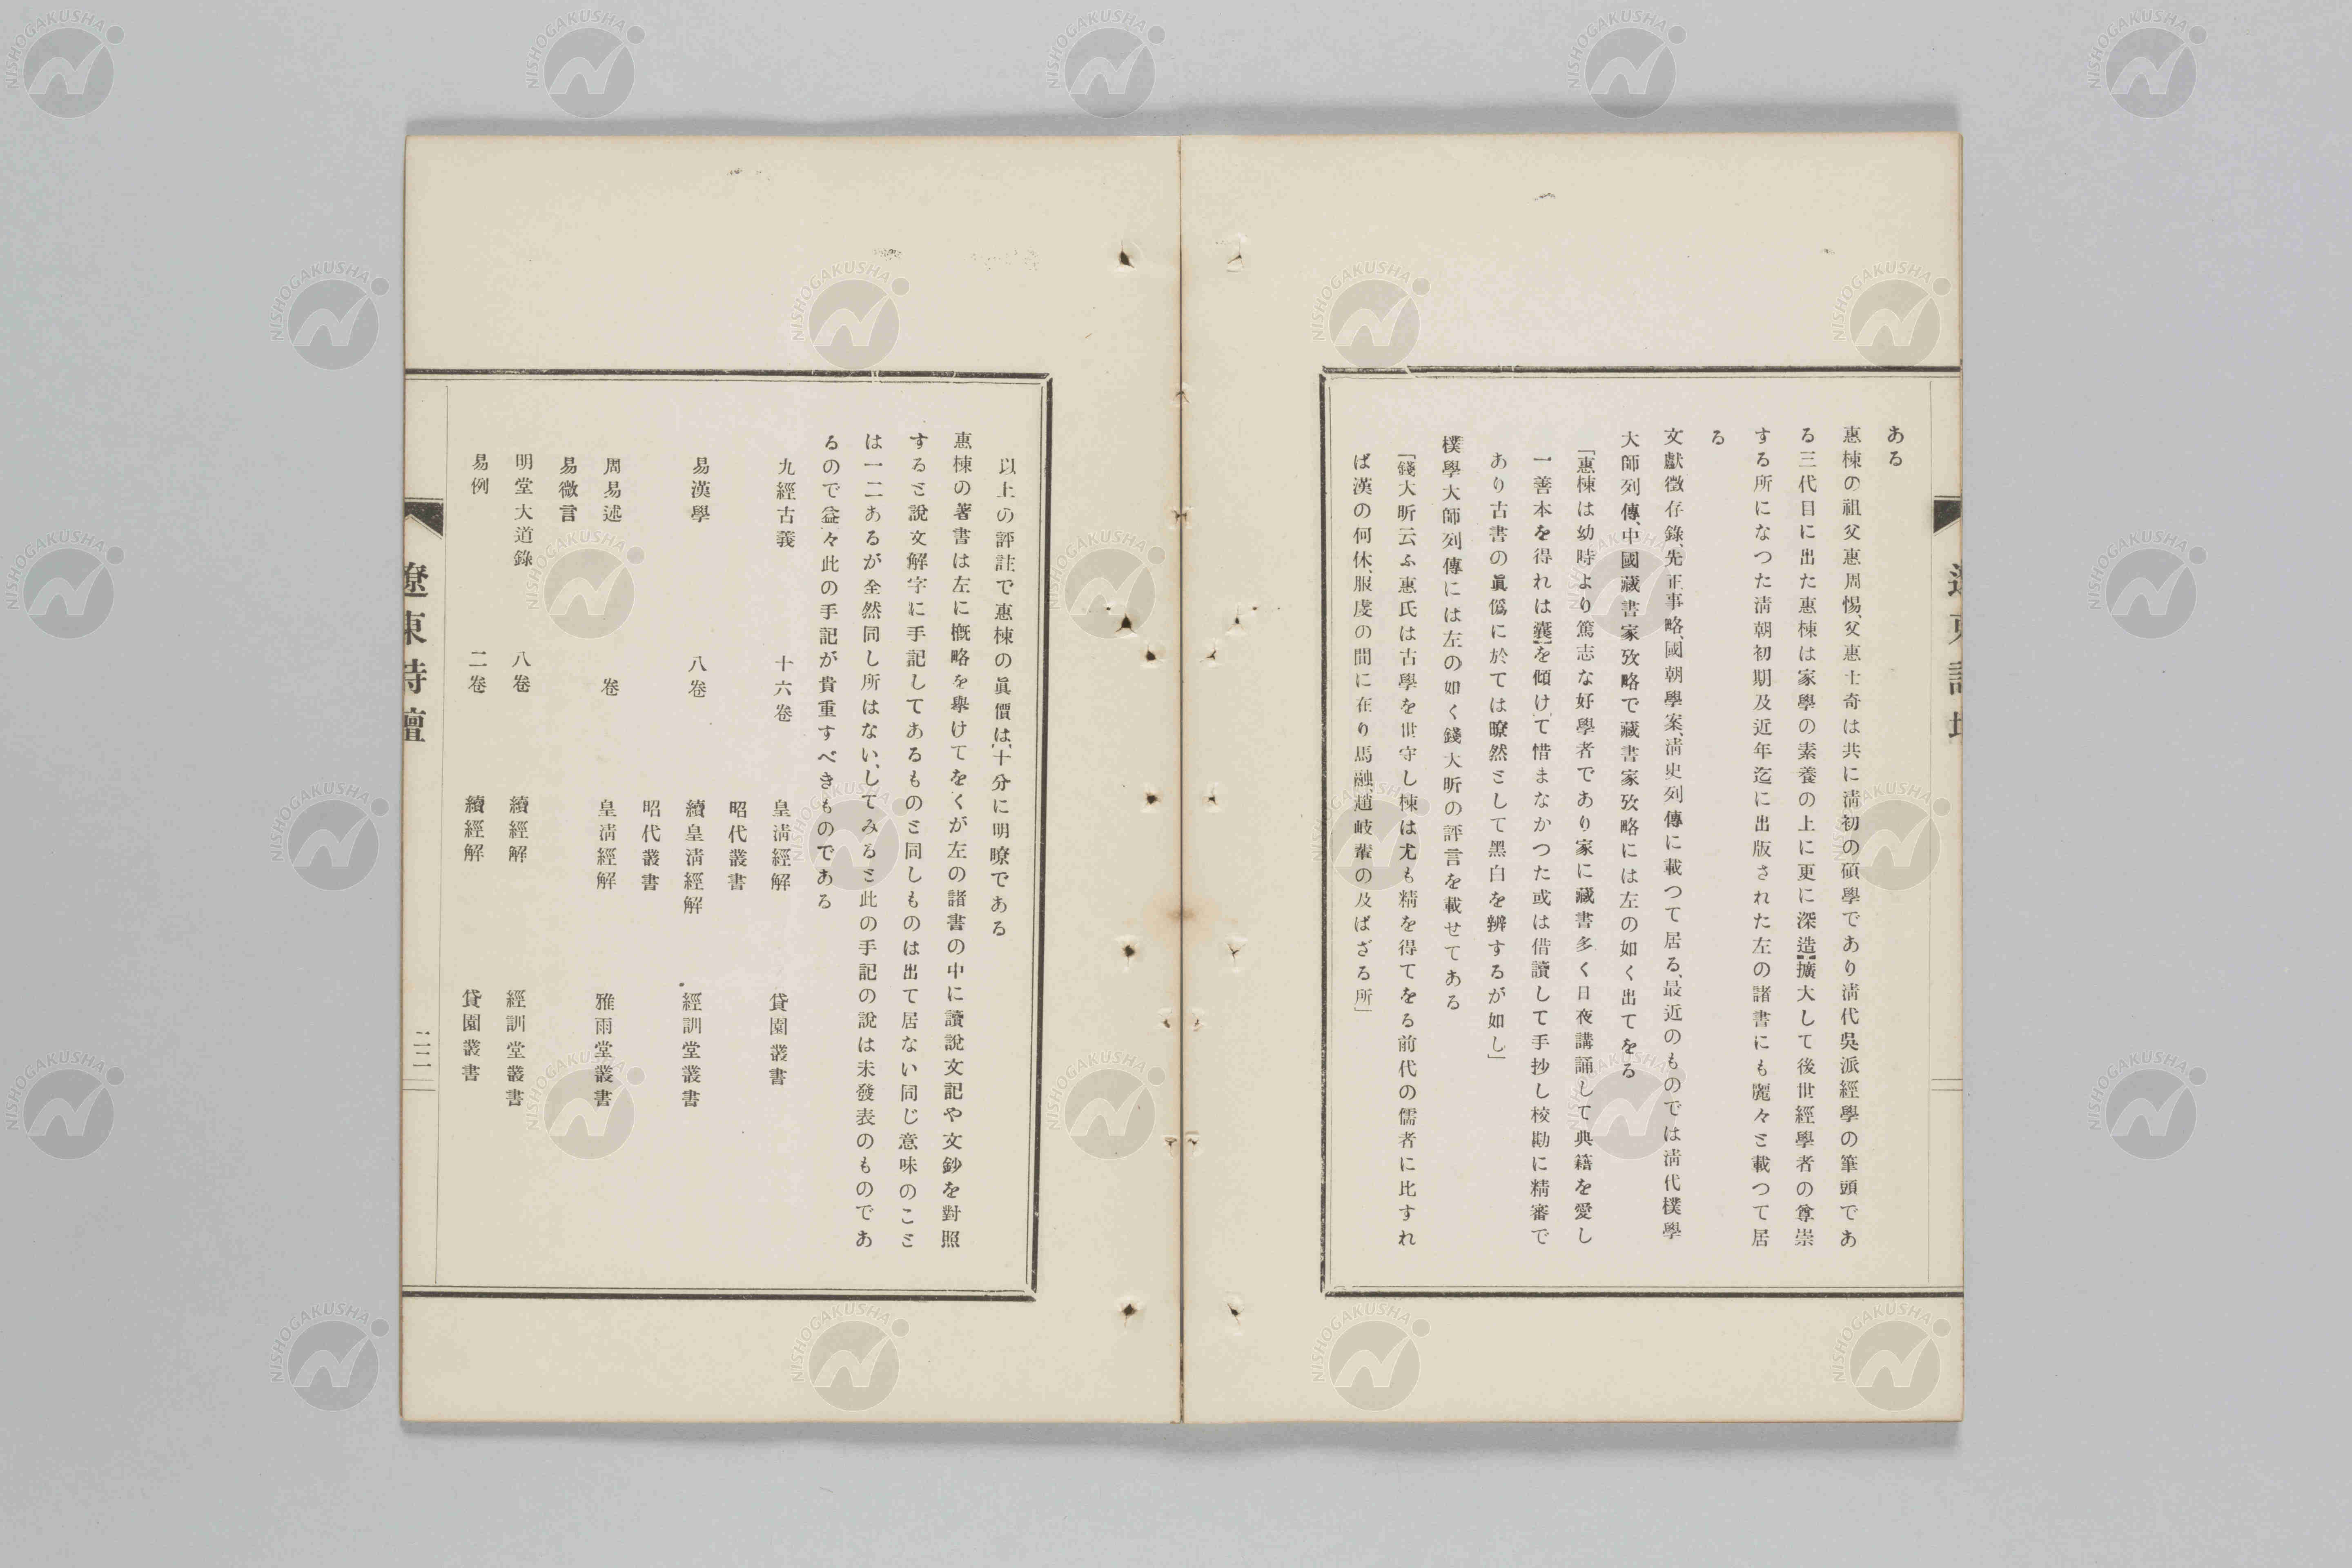 ある
惠棟の祖父惠周惕、父惠士奇は共に淸初の碩學であり淸代吳派經學の筆頭であ
る三代目に出た惠棟は家學の素養の上に更に深造擴大して後世經學者の尊崇
する所になつた淸朝初期及近年迄に出版された左の諸書にも麗々と載つて居
る
文獻徵存錄、先正事略、國朝學案、淸史列傳に載つて居る、最近のものでは淸代樸學
大師列傳、中國藏書家攷略で藏書家攷略には左の如く出てをる
「惠棟は幼時より篤志な好學者であり家に藏書多く日夜講誦して典籍を愛し
一善本を得れは囊を傾けて惜まなかつた或は借讀して手抄し校勘に精審で
あり古書の眞僞に於ては瞭然として黑白を辨するが如し」
樸學大師列傳には左の如く錢大昕の評言を載せてある
「錢大昕云ふ惠氏は古學を世守し棟は尤も精を得てをる前代の儒者に比すれ
ば漢の何休、服虔の間に在り馬融、趙岐輩の及ばざる所」
以上の評註で惠棟の眞價は、十分に明瞭である
惠棟の著書は左に槪略を擧けてをくが左の諸書の中に讀說文記や文鈔を對照
すると說文解字に手記してあるものと同しものは出て居ない同じ意味のこと
は一二あるが全然同し所はない、してみると此の手記の說は未發表のものであ
るので益々此の手記が貴重すべきものである
九經古義 十六卷 皇淸經解 貸園叢書
昭代叢書
易漢學 八卷 續皇淸經解 經訓堂叢書
昭代叢書
周易述 卷 皇淸經解 雅雨堂叢書
易微言
明堂大道錄 八卷 續經解 經訓堂叢書
易例 二卷 續經解 貸園叢書
遼東詩壇
二二
NISHOGAKUSHA